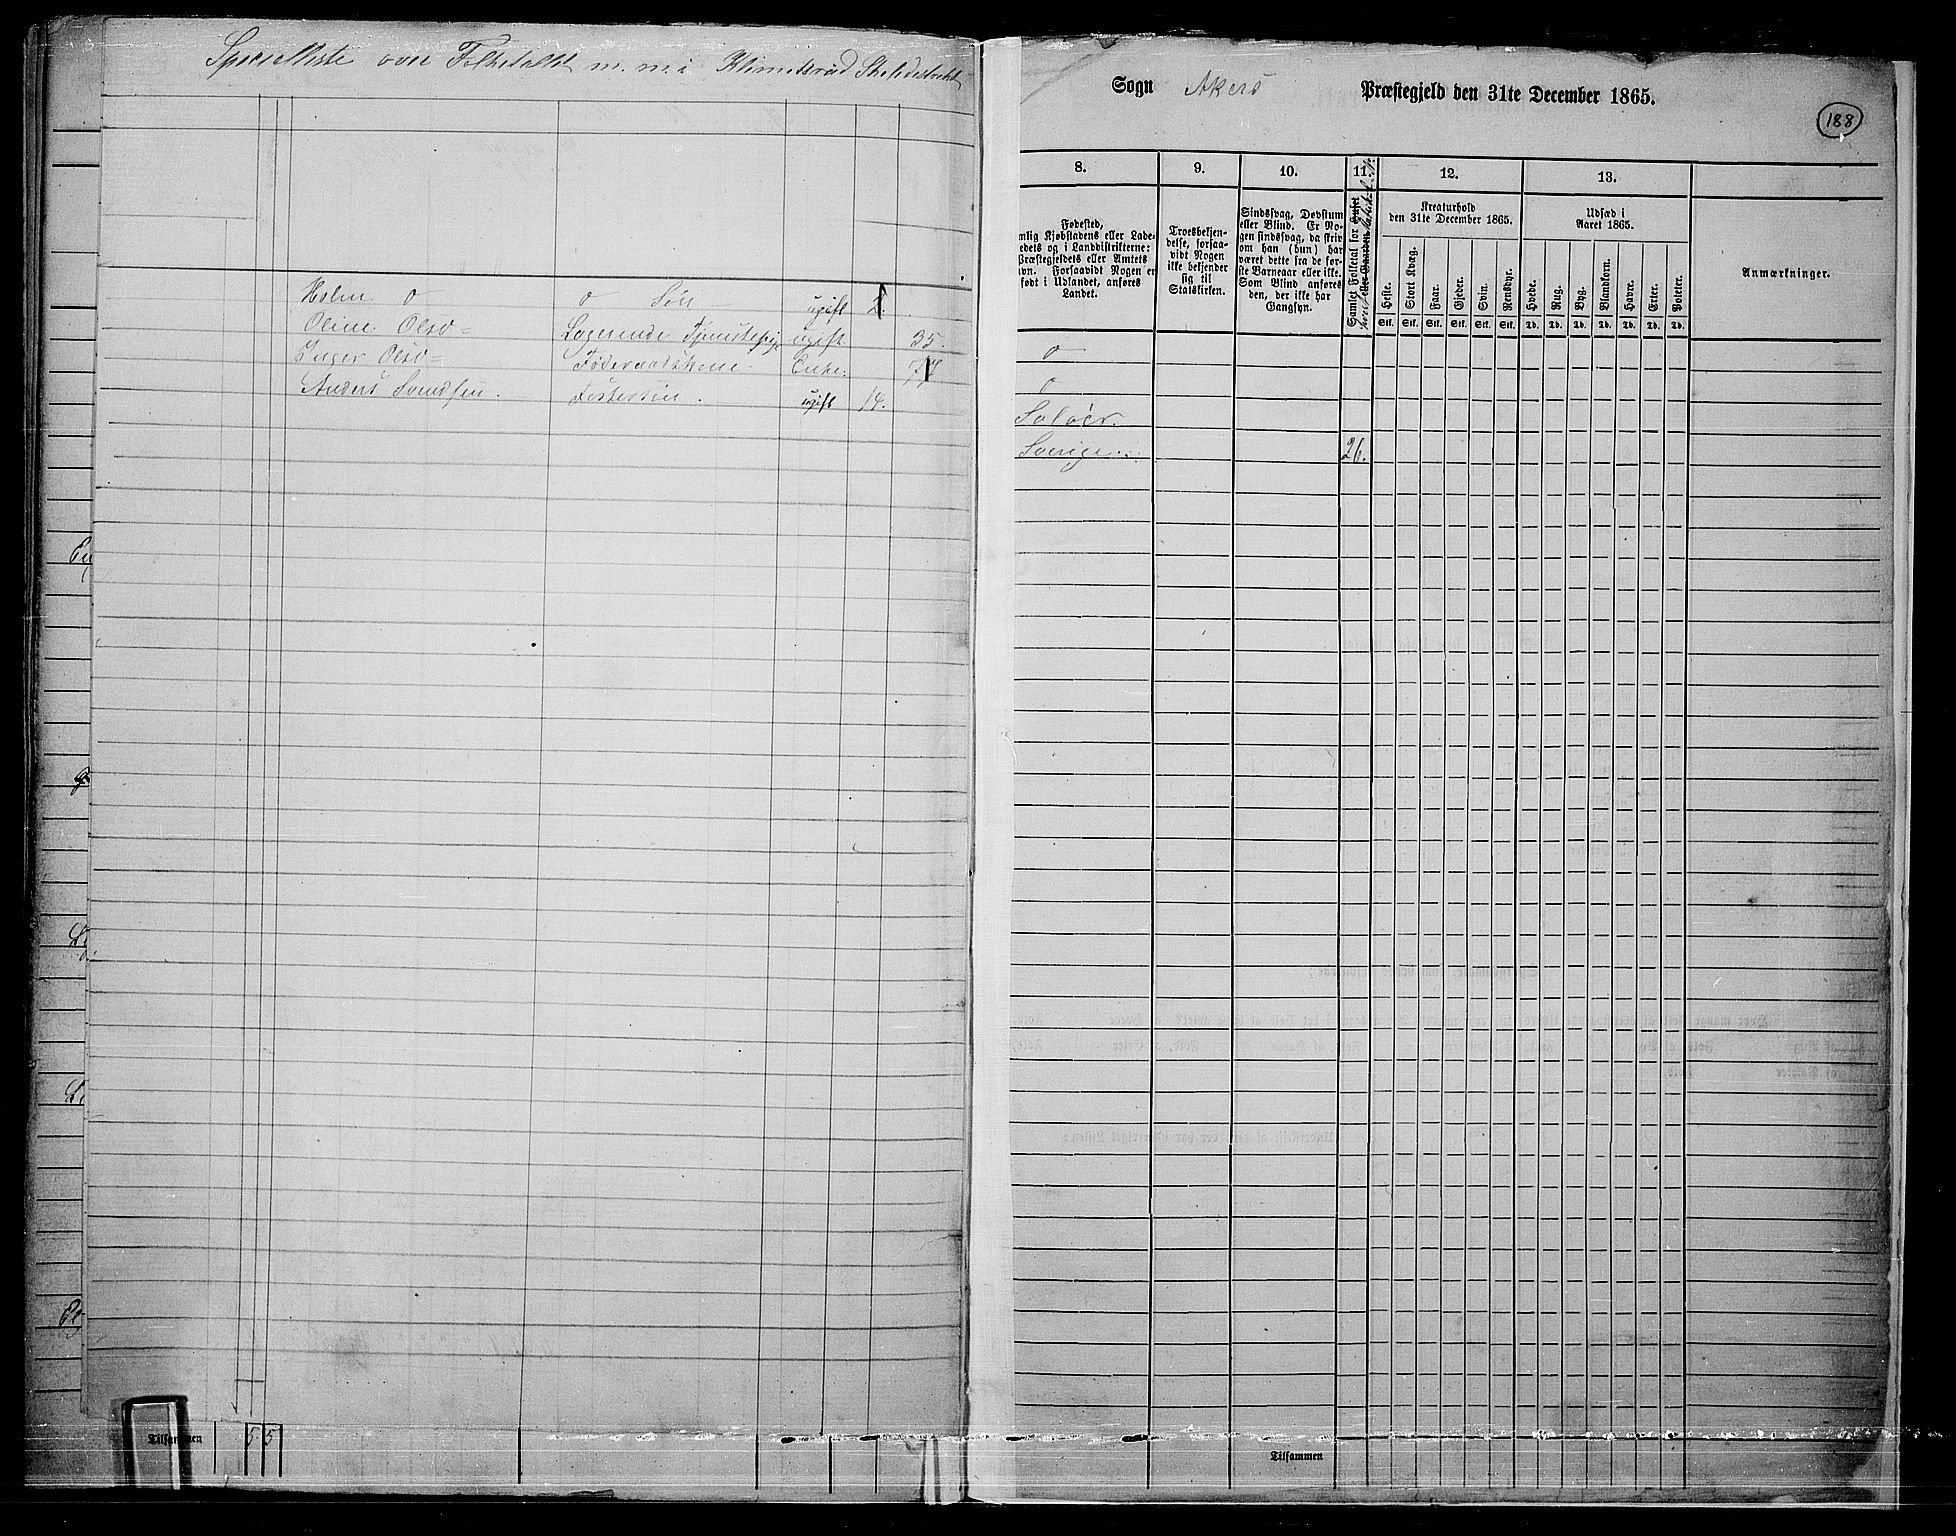 Specialliste over Folketallet m. m. i Klemetsrud Skoledistrikt
Sogn Akers Præstegjeld den 31te December 1865.
188
8. 9. 10. 11. 12. 13.
Fødested,
mlig Kjøbstadens eller Lade-
edets og i Landdistrikterne:
Præstegjeldets eller Amtets
vn. Forsaavidt Nogen er
født i Udlandet, anføres
Landet.
Troesbekjen-
delse, forsaa-
vidt Nogen
ikke bekjender
sig til
Statskirken.
Sindssvag, Døvstum
eller Blind. Er No-
gen sindssvag, da skriv
om han (hun) har
været dette fra de før-
ste Barneaar eller ikke.
Som Blind anføres
den, der ikke har
Gangsyn.
Samlet Folketal for Huset
eller Gaarden
Kreaturhold
den 31te December 1865.
Heste. Stort Kvæg. Faar. Gjeder. Svin. Rensdyr.
Stk. Stk. Stk. Stk. Stk. Stk.
Udsæd i
Aaret 1865.
Hvede. Rug. Byg. Blandkorn. Havre. Erter. Poteter.
Td. Td. Td. Td. Td. Td. Td.
Anmærkninger.
Holm o o Søn ugift
Oline Olsd= Logerende Tjenestepige ugift 35.
Inger Olsd= Føderaadskone. Enke. 77
Anders Svendsen. Fostersøn. ugift 14.
o
o
Soløer.
Sverige. 26.
Tilsammen 5 5
Tilsammen